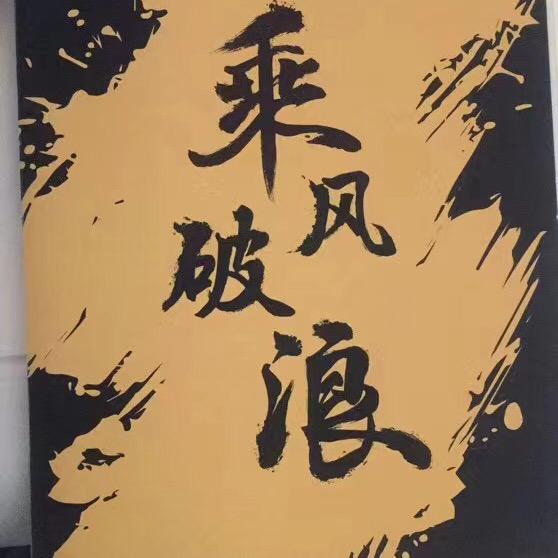 乘风
破浪